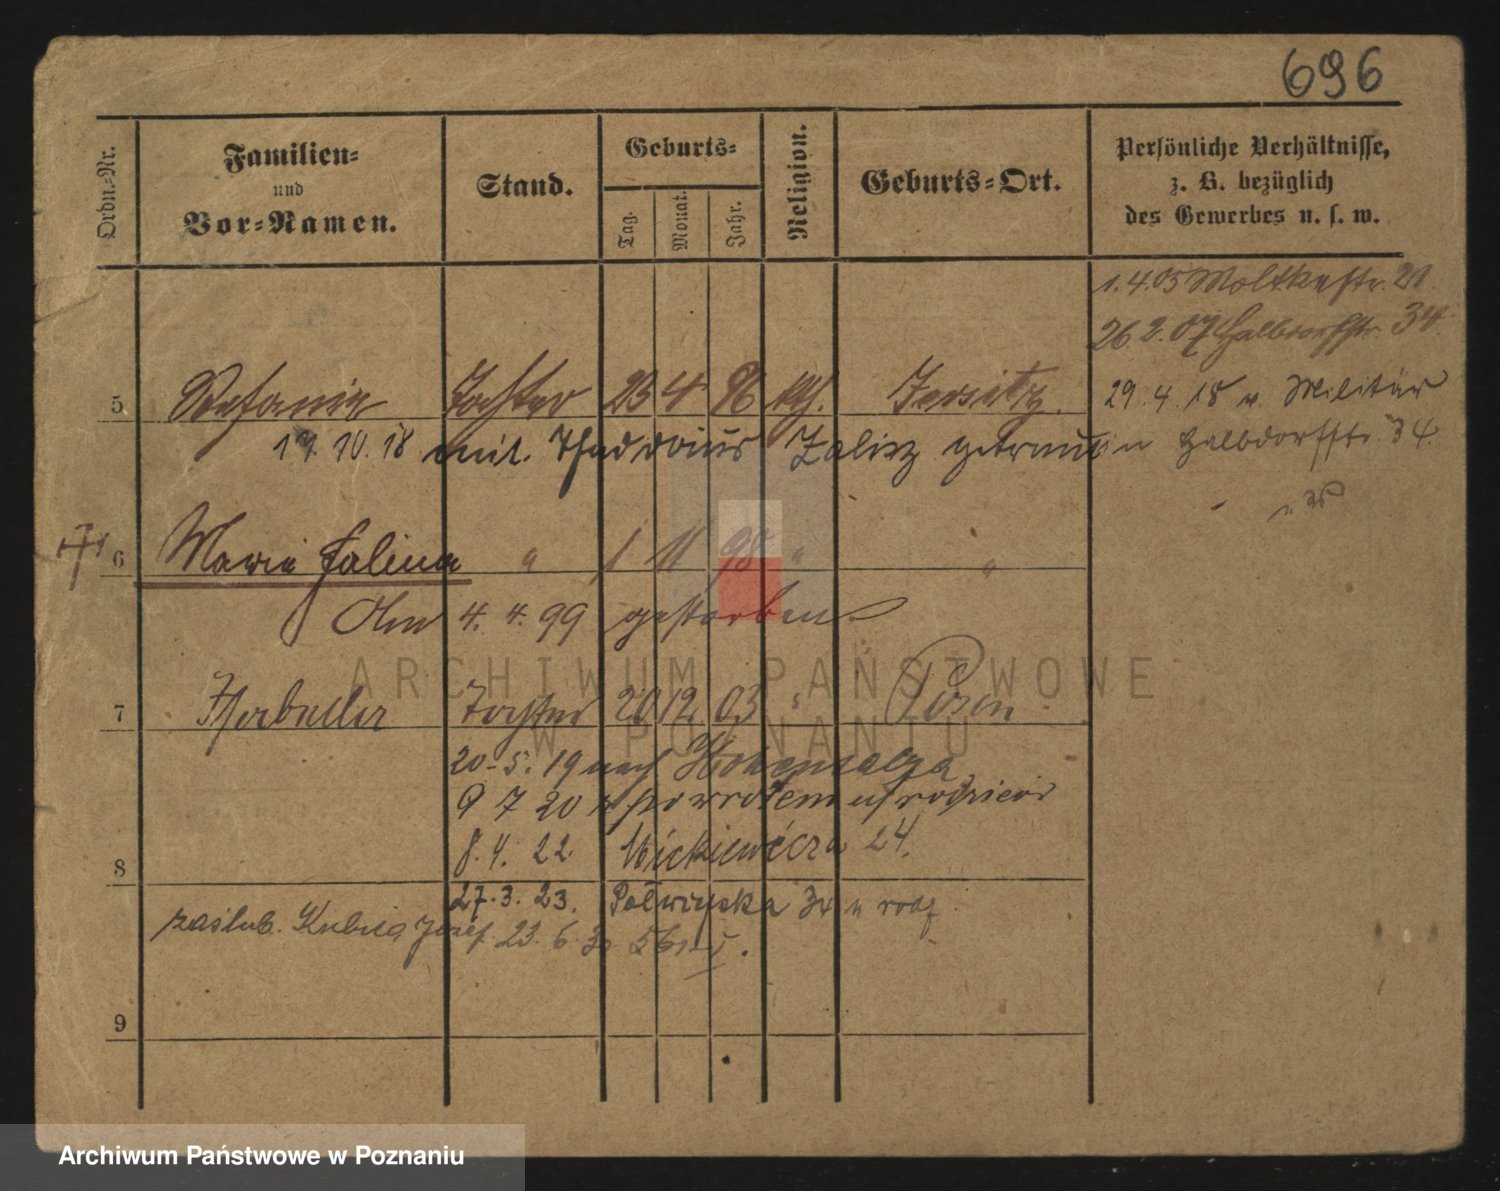 696
Ordn.-Nr.
Familien-
und
Vor-Namen.
Stand.
Geburts-
Tag.
Monat.
Jahr.
Religion.
Geburts-Ort.
Persönliche Verhältnisse,
z. B. bezüglich
des Gewerbes u. s. w.
1.4.05 Moltkestr. 21
26.2.07 Halbdorfstr. 34
5 Stefanie Tochter 23 4 96 kth. Jersitz.
29.4.18 v. Militär
17.10.18 mit Thaddäus Zalisz getraut
Halbdorfstr. 34
6 Marie Halina " 1 11 98 " "
Am 4.4.99 gestorben
7 Isabella Tochter 20 12 03 " Posen
20-5.19 nach Hohensalza
9 7 20 z powrotem u rodziców
8.4.22 Mickiewicza 24.
8
27.3.23. Półwiejska 34 u rodz
zaślub. Kubica Józef 23.6.
9
ARCHIWUM PAŃSTWOWE
W POZNANIU
Archiwum Państwowe w Poznaniu